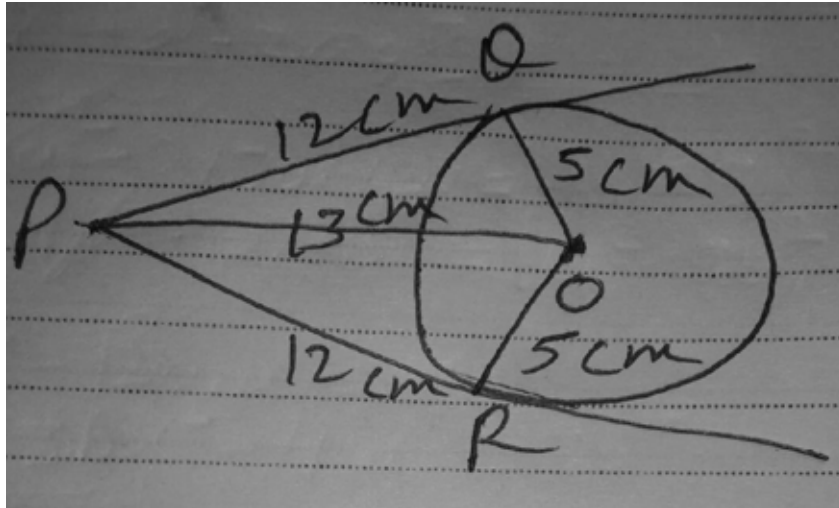 Q
12 cm
5 cm
P
13 cm
O
12 cm
5 cm
R